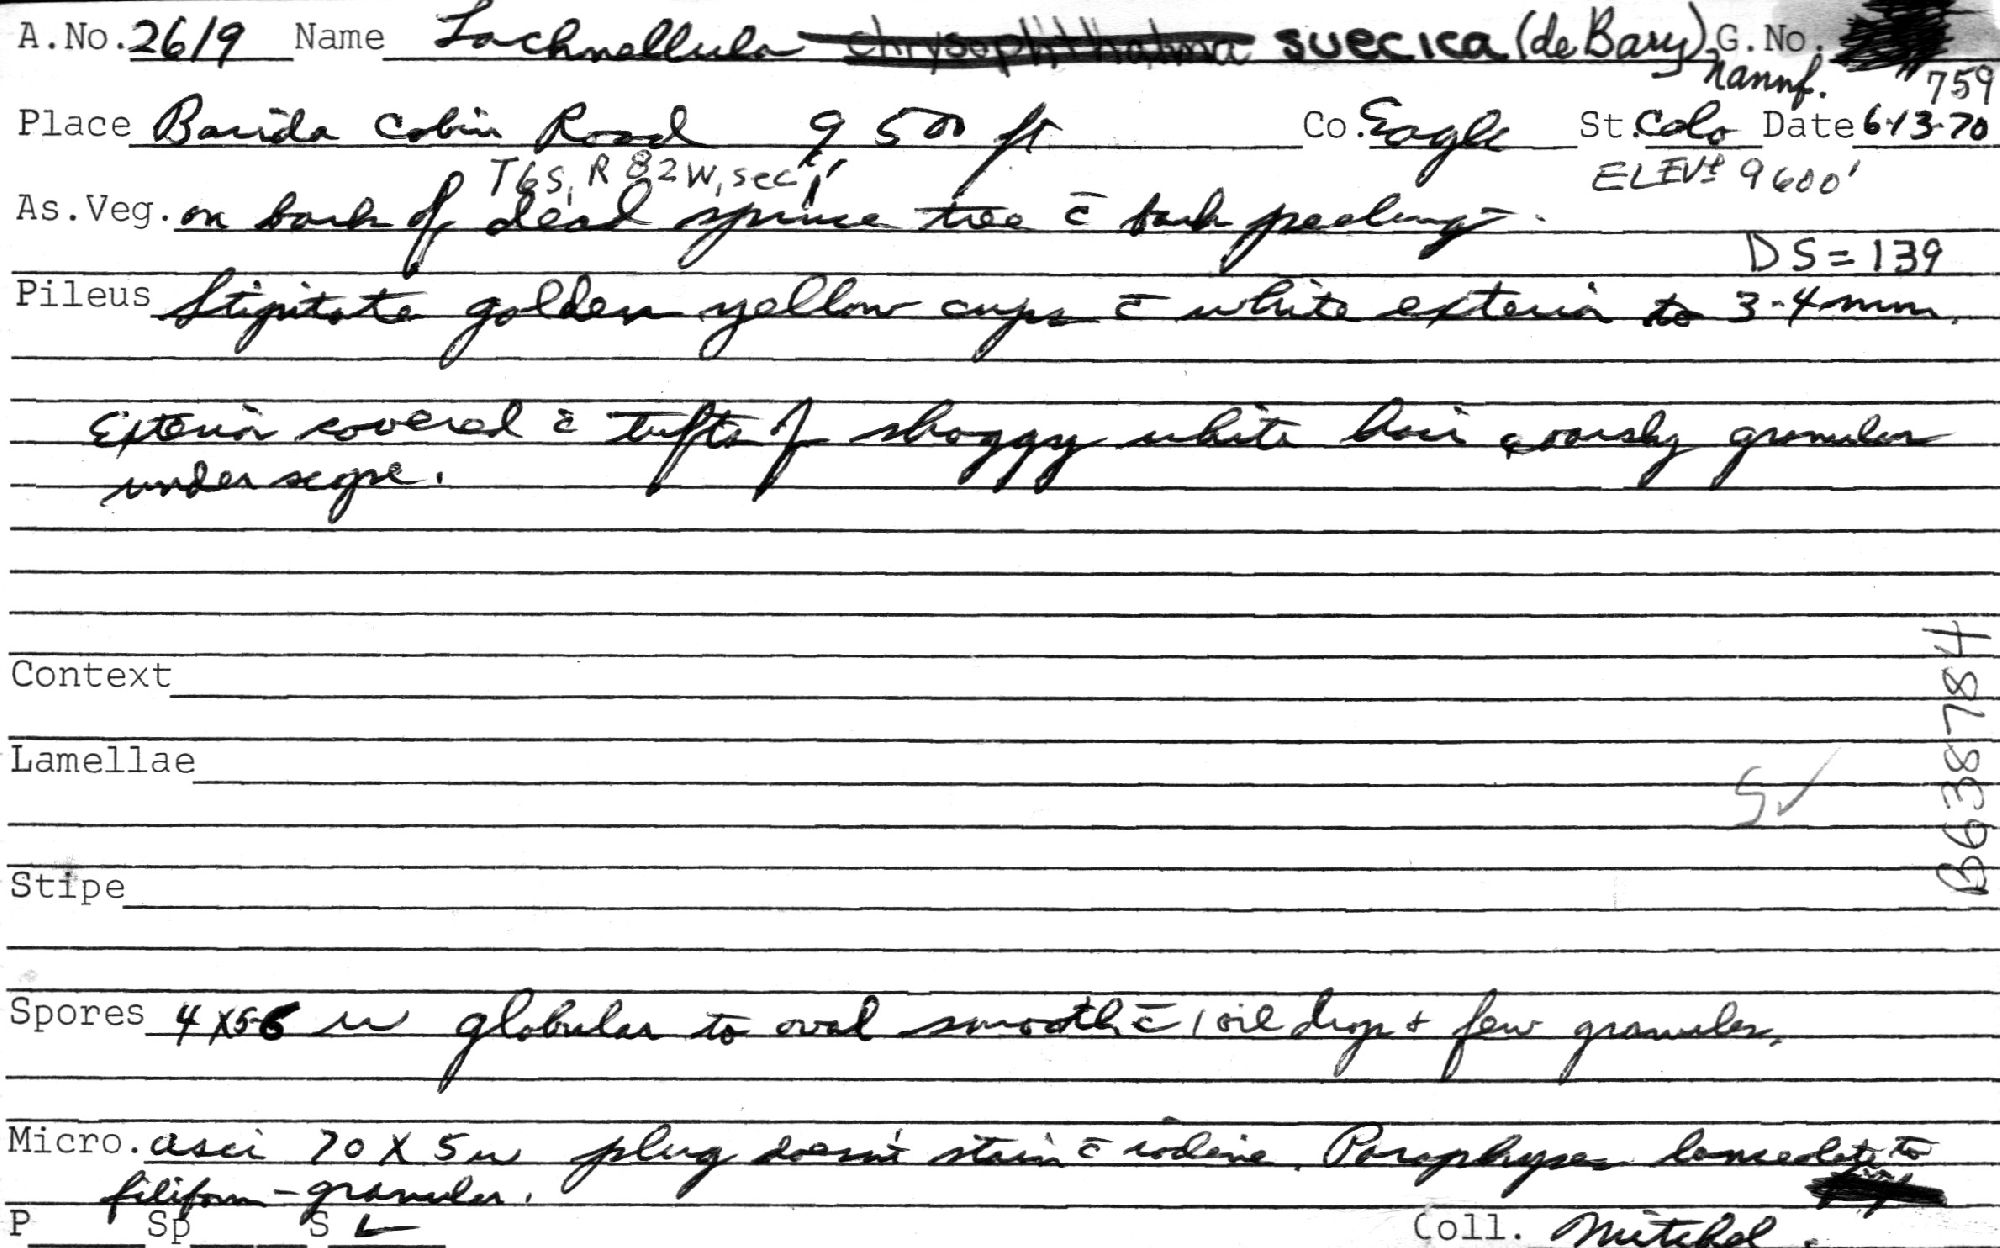 A.No. 2619 Name Lachnellula chrysophthalma suecica (de Bary) G.No.
Nannf. 759
Place Barida Cabin Road 9,500 ft Co. Eagle St. Colo Date 6-13-70
T6S, R 82W, sec 1 ELEV. 9600'
As.Veg. on bark of dead spruce tree c̄ bark peeling.
DS=139
Pileus Stipitate golden yellow cups c̄ white exterior to 3-4mm.
Exterior covered c̄ tufts of shaggy white hair coarsly granular
under scope.
Context
Lamellae
5✓
Stipe
B638784
Spores 4X5-6 u globular to oval smooth c̄ 1 oil drop + few granules,
Micro. asci 70 X 5 u plug doesn't stain c̄ iodine. Paraphyses lanceolate to
filiform - granular.
P Sp S ✓ Coll. Mitchel.